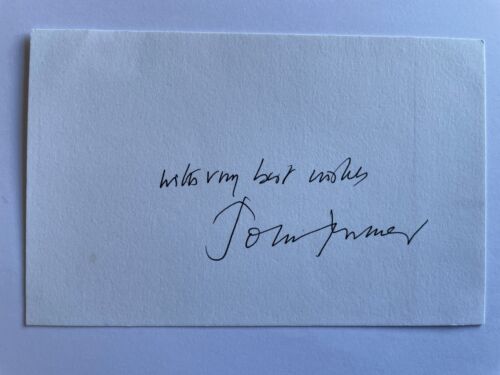 with very best wishes
John